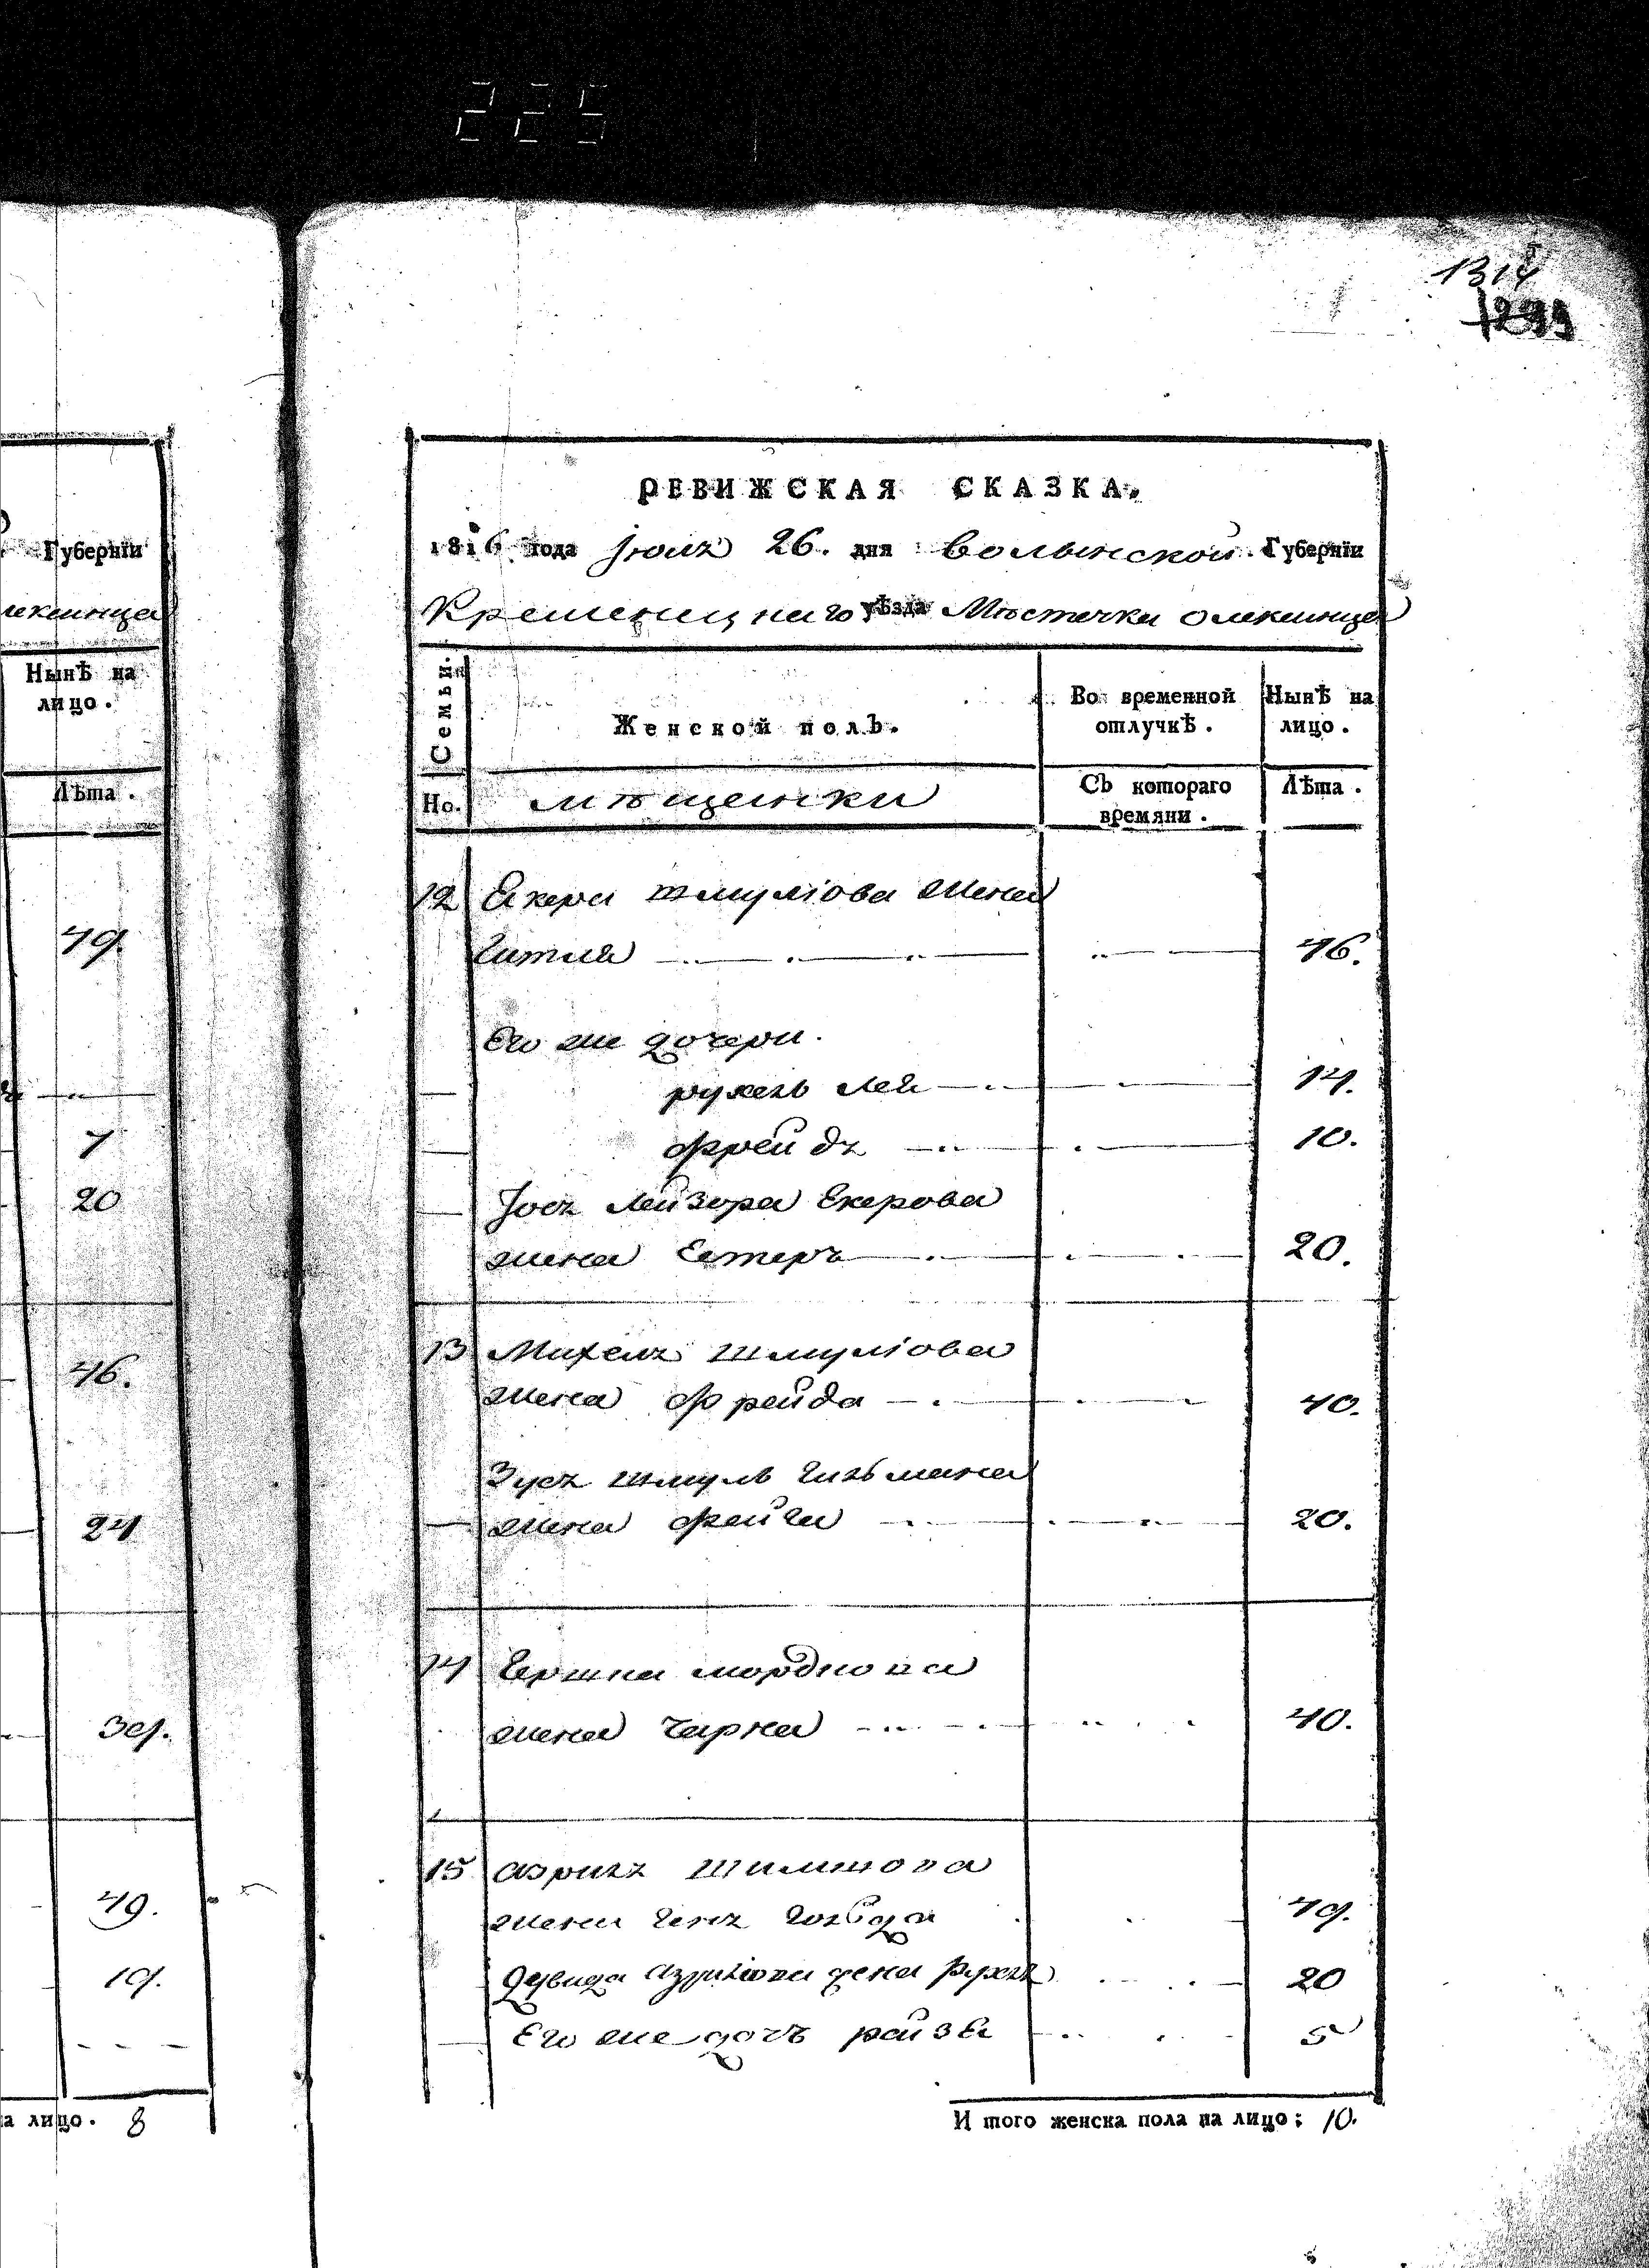 225
1314
1299
Губернїи
лекшнца
Нынѣ на
лицо.
Лѣта.
49.
7
20
46.
24
39.
49.
19.
а лицо. 8
РЕВИЖСКАЯ СКАЗКА,
1816 года Јюля 26. дня Волынской Губернїи
Кременецкаго уѣзда Мѣстечка Олекшнца
Семьи.
Женской полъ.
Во временной отлучкѣ.
Нынѣ на лицо.
Но. мѣщенки
Съ котораго времяни.
Лѣта.
12 Екера Шмулiова жена
Гитля 46.
Его же дочери.
рухель Лея 14.
Фрейдъ 10.
Јосъ Лейзора Екерова
жена Естеръ 20.
13 Михель Шмулiова
жена Фрейда 40.
Зусъ Шмуль Гизьмана
жена Фейга 20.
14 Гершка мордкова
жена Чарна 40.
15 Азриль Шимшова
жена Генъ 49.
Давида Азрилiова жена Рухль 20
Его же дочъ рейзя 5
И того женска пола на лицо: 10.